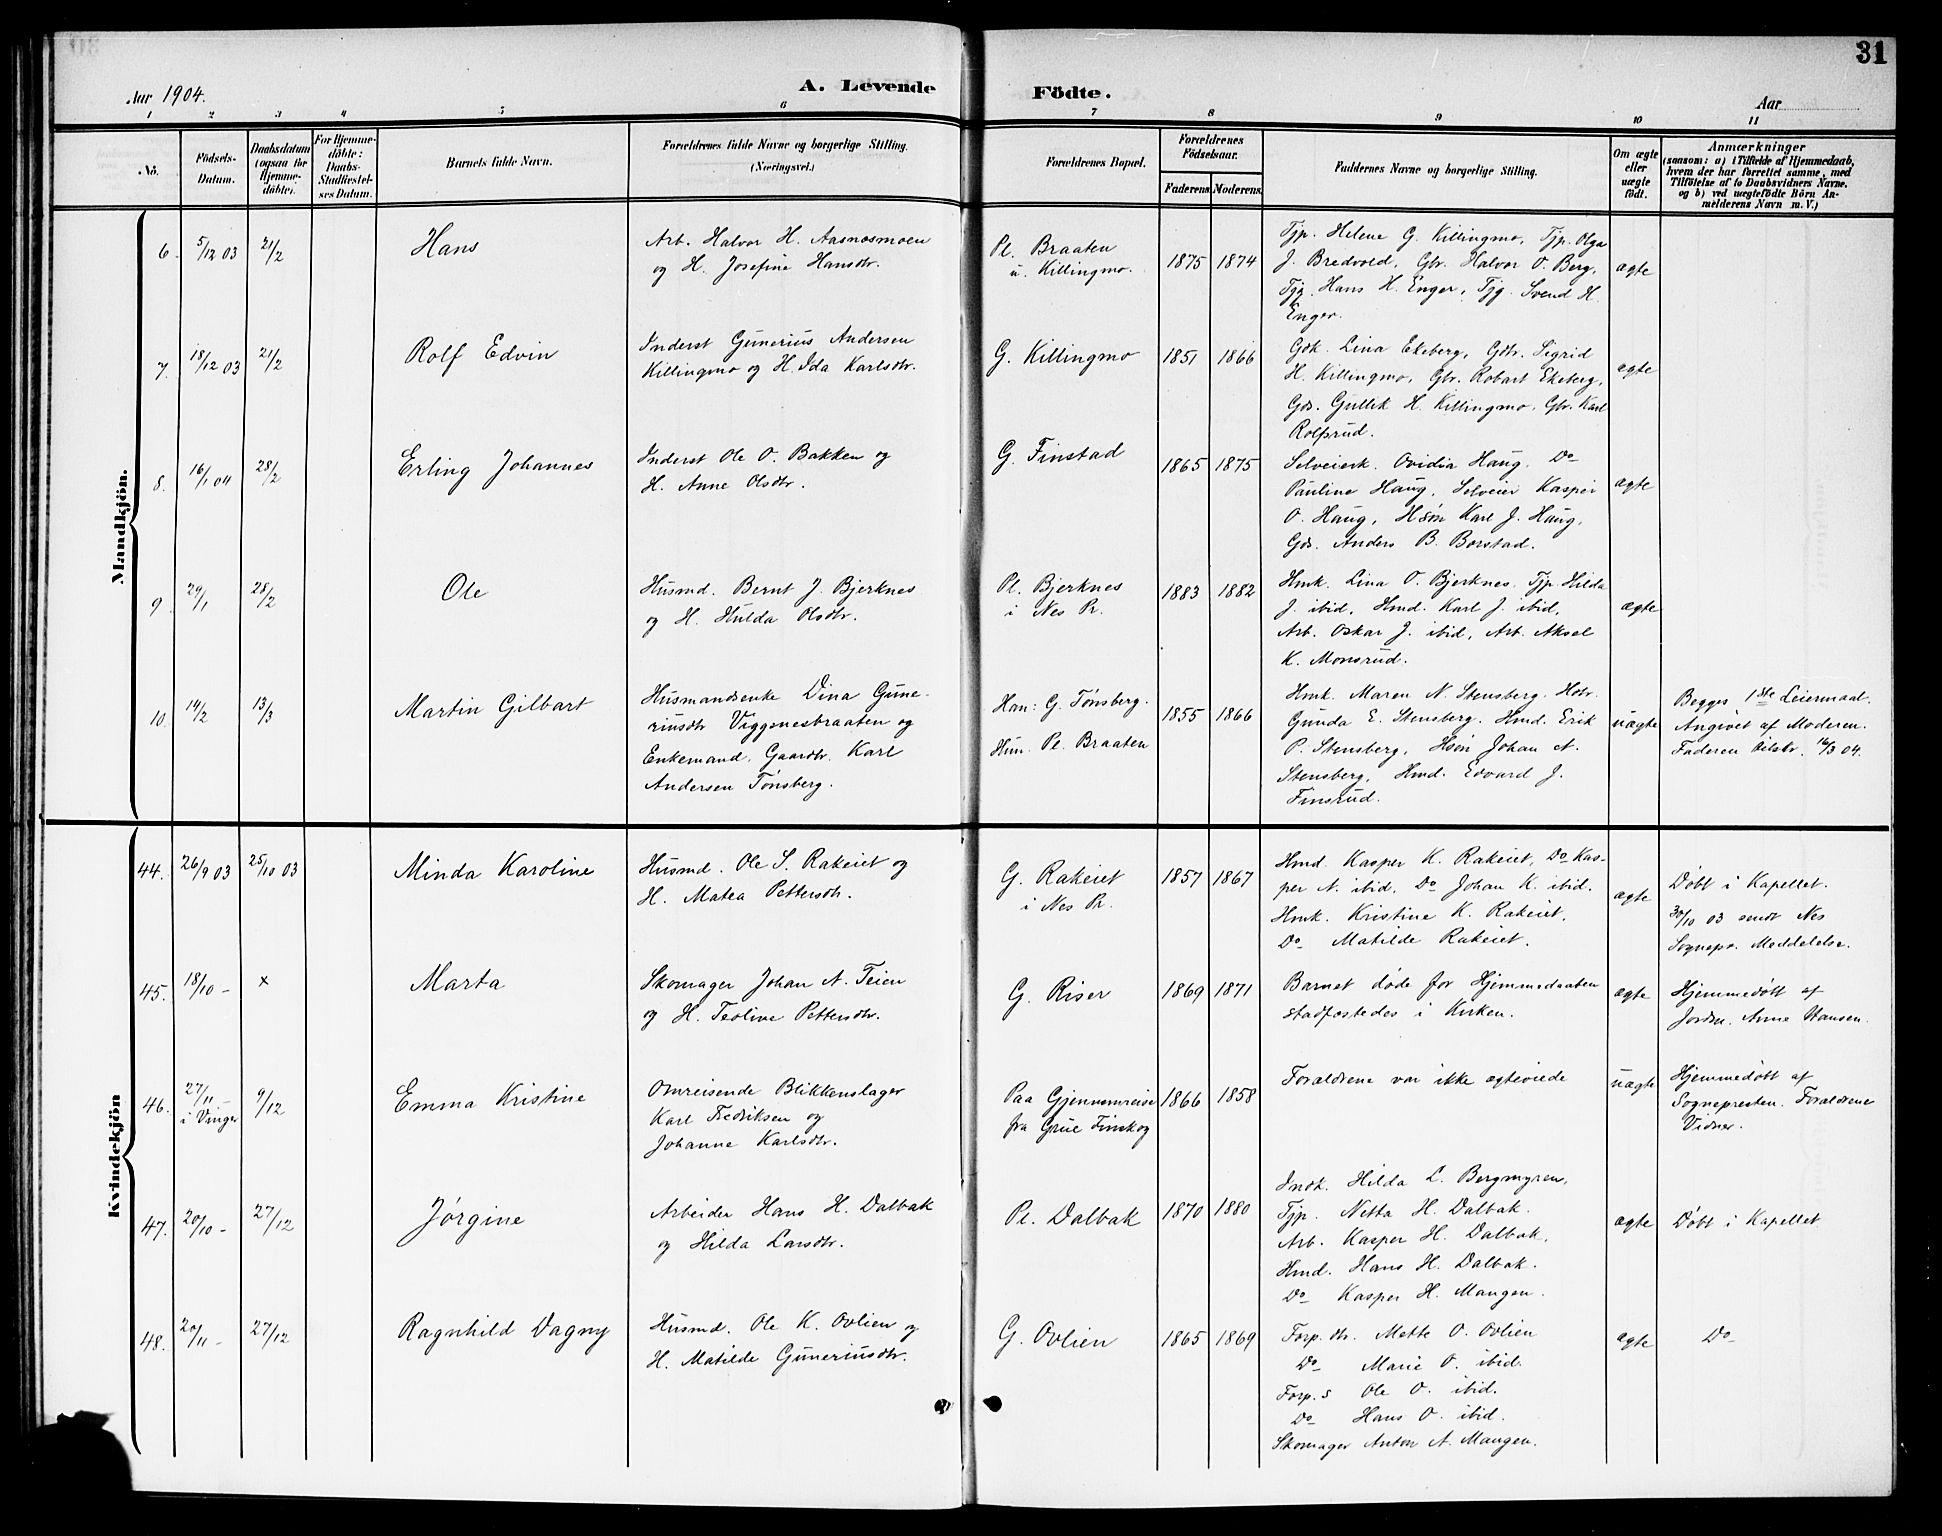 31
Aar 1904.
A. Levende
Födte.
Aar
1 2 3 4 5 6 7 8 9 10 11
No.
Födsels-
Datum.
Daabsdatum
(ogsaa for
Hjemme-
döbte).
For Hjemme-
döbte:
Daabs-
Stadfæstel-
ses Datum.
Barnets fulde Navn.
Forældrenes fulde Navne og borgerlige Stilling.
(Næringsvei.)
Forældrenes Bopæl.
Forældrenes
Födselsaar.
Faderens Moderens
Faddernes Navne og borgerlige Stilling.
Om ægte
eller
uægte
födt.
Anmærkninger
(saasom: a) i Tilfælde af Hjemmedaab,
hvem der har forrettet samme, med
Tilföielse af to Daabsvidners Navne,
og b) ved uægtefödte Börn An-
melderens Navn m. V.)
Mandkjön.
6. 5/12 03 21/2
Hans
Arb. Halvor H. Aasnosmoen
og H. Josefine Hansdtr.
Pl. Braaten
u. Killingmo.
1875 1874
Tjp. Helene G. Killingmo, Tjp. Olga
J. Bredvold, Gbr. Halvor O. Berg,
Tjg. Hans H. Enger, Tjg. Svend H.
Enger.
ægte
7. 18/12 03 21/2
Rolf Edvin
Inderst Gunerius Andersen
Killingmo og H. Ida Karlsdtr.
G. Killingmo
1851 1866
Gdk. Lina Ekeberg, Gdtr. Sigrid
H. Killingmo, Gbr. Robart Ekeberg,
Gds. Gullik H. Killingmo, Gbr. Karl
Rolfsrud.
ægte
8. 16/1 04 28/2
Erling Johannes
Inderst Ole O. Bakken og
H. Anne Olsdtr.
G. Finstad
1865 1875
Selveierk. Ovidia Haug. Do
Pauline Haug, Selveier Kasper
O. Haug, Hsøn Karl J. Haug,
Gds. Anders B. Borstad.
ægte
9. 29/1 28/2
Ole
Husmd. Bernt J. Bjerknes
og H. Hulda Olsdtr.
Pl. Bjerknes
i Nes Pr.
1883 1882
Hmk. Lina O. Bjerknes. Tjp. Hilda
J. ibid, Hmd. Karl J. ibid,
Arb. Oskar J. ibid, Arb. Aksel
K. Monsrud.
ægte
10. 14/2 13/3
Martin Gilbart
Husmandsenke Dina Gune-
riusdtr Viggenesbraaten og
Enkemand, Gaardbr. Karl
Andersen Tønsberg.
Han: G. Tønsberg.
Hun. Pl. Braaten
1855 1866
Hmk. Maren N. Stensberg. Hdtr.
Gunda E. Stensberg. Hmd. Erik
P. Stensberg, Hsøn Johan N.
Stensberg, Hmd. Edvard J.
Finsrud.
uægte
Begges 1ste Leiermaal.
Angivet af Moderen.
Faderen 16/3 04.
Kvindekjön
44. 26/9 03 25/10 03
Minda Karoline
Husmd. Ole S. Rakeiet og
H. Matea Pettersdtr.
G. Rakeiet
i Nes Pr.
1857 1867
Hmd. Kasper K. Rakeiet, Do Kas-
per N. ibid. Do Johan K. ibid.
Hmk. Kristine K. Rakeiet.
Do Matilde Rakeiet.
ægte
Døbt i Kapellet.
30/10 03 sendt Nes
Sognepr. Meddelelse.
45. 18/10 - x
Marta
Skomager Johan A. Teien
og H. Teoline Pettersdtr.
G. Riser
1869 1871
Barnet døde før Hjemmedaaben
stadfæstedes i Kirken.
ægte
Hjemmedøbt af
Jordm. Anne Hansen.
46. 27/11 - 9/12
i Vinger
Emma Kristine
Omreisende Blikkenslager
Karl Fredriksen og
Johanne Karlsdtr.
Paa Gjennemreise
fra Grue Finskog
1866 1858
Forældrene var ikke ægteviede
uægte
Hjemmedøbt af
Sognepresten. Forældrene
Vidner.
47. 20/10 - 27/12
Jørgine
Arbeider Hans H. Dalbak
og Hilda Larsdtr.
Pl. Dalbak
1870 1880
Indk. Hilda L. Bergmyren,
Tjp. Netta H. Dalbak.
Arb. Kasper H. Dalbak,
Hmd. Hans H. Dalbak.
Do Kasper H. Mangen.
ægte
Døbt i Kapellet
48. 20/11 - 27/12
Ragnhild Dagny
Husmd. Ole K. Ovlien og
H. Matilde Guneriusdtr.
G. Ovlien
1865 1869
Forp. dtr. Mette O. Ovlien
Do Marie O. ibid.
Forp. s Ole O. ibid.
Do Hans O. ibid.
Skomager Anton A. Mangen.
ægte
Do